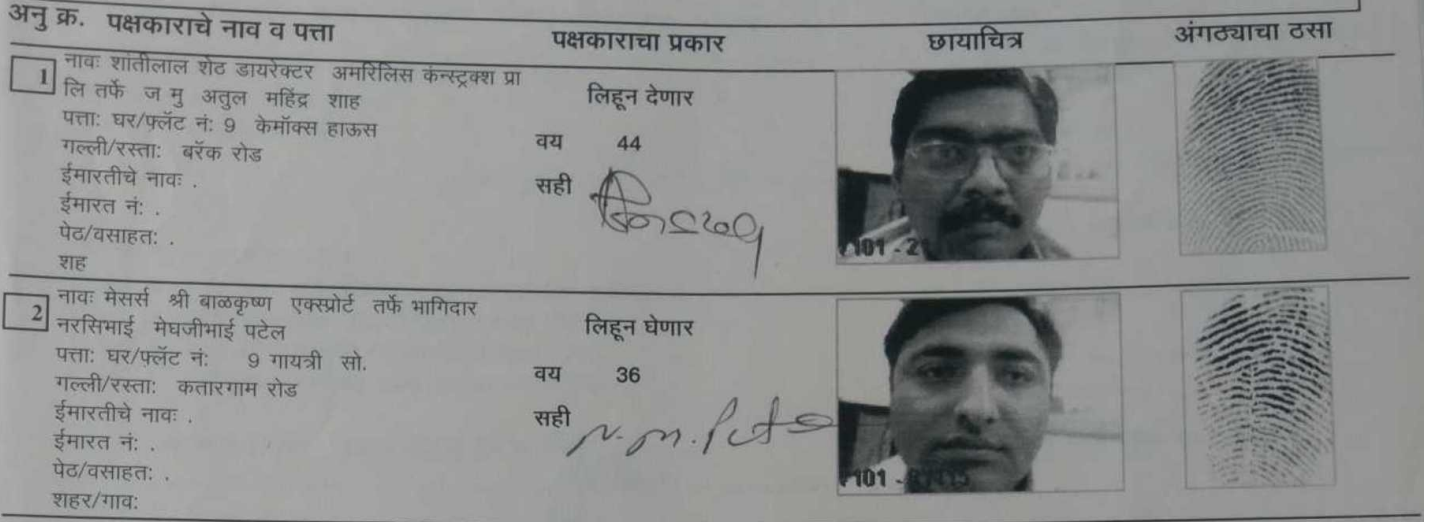 अनु क्र. पक्षकाराचे नाव व पत्ता पक्षकाराचा प्रकार छायाचित्र अंगठ्याचा ठसा
1 नावः शांतीलाल शेठ डायरेक्टर अमरिलिस कंन्स्ट्रक्श प्रा
लि तर्फे ज मु अतुल महिंद्र शाह लिहून देणार
पत्ता: घर/फ्लॅट नं: 9 केमॉक्स हाऊस
गल्ली/रस्ता: बरॅक रोड वय 44
ईमारतीचे नावः .
ईमारत नं: . सही
पेठ/वसाहत: .
शह
101 - 21
2 नावः मेसर्स श्री बाळकृष्ण एक्स्प्रोर्ट तर्फे भागिदार
नरसिभाई मेघजीभाई पटेल लिहून घेणार
पत्ता: घर/फ्लॅट नं: 9 गायत्री सो.
गल्ली/रस्ता: कतारगाम रोड वय 36
ईमारतीचे नावः .
ईमारत नं: . सही N. M.
पेठ/वसाहत: .
शहर/गाव:
101 -